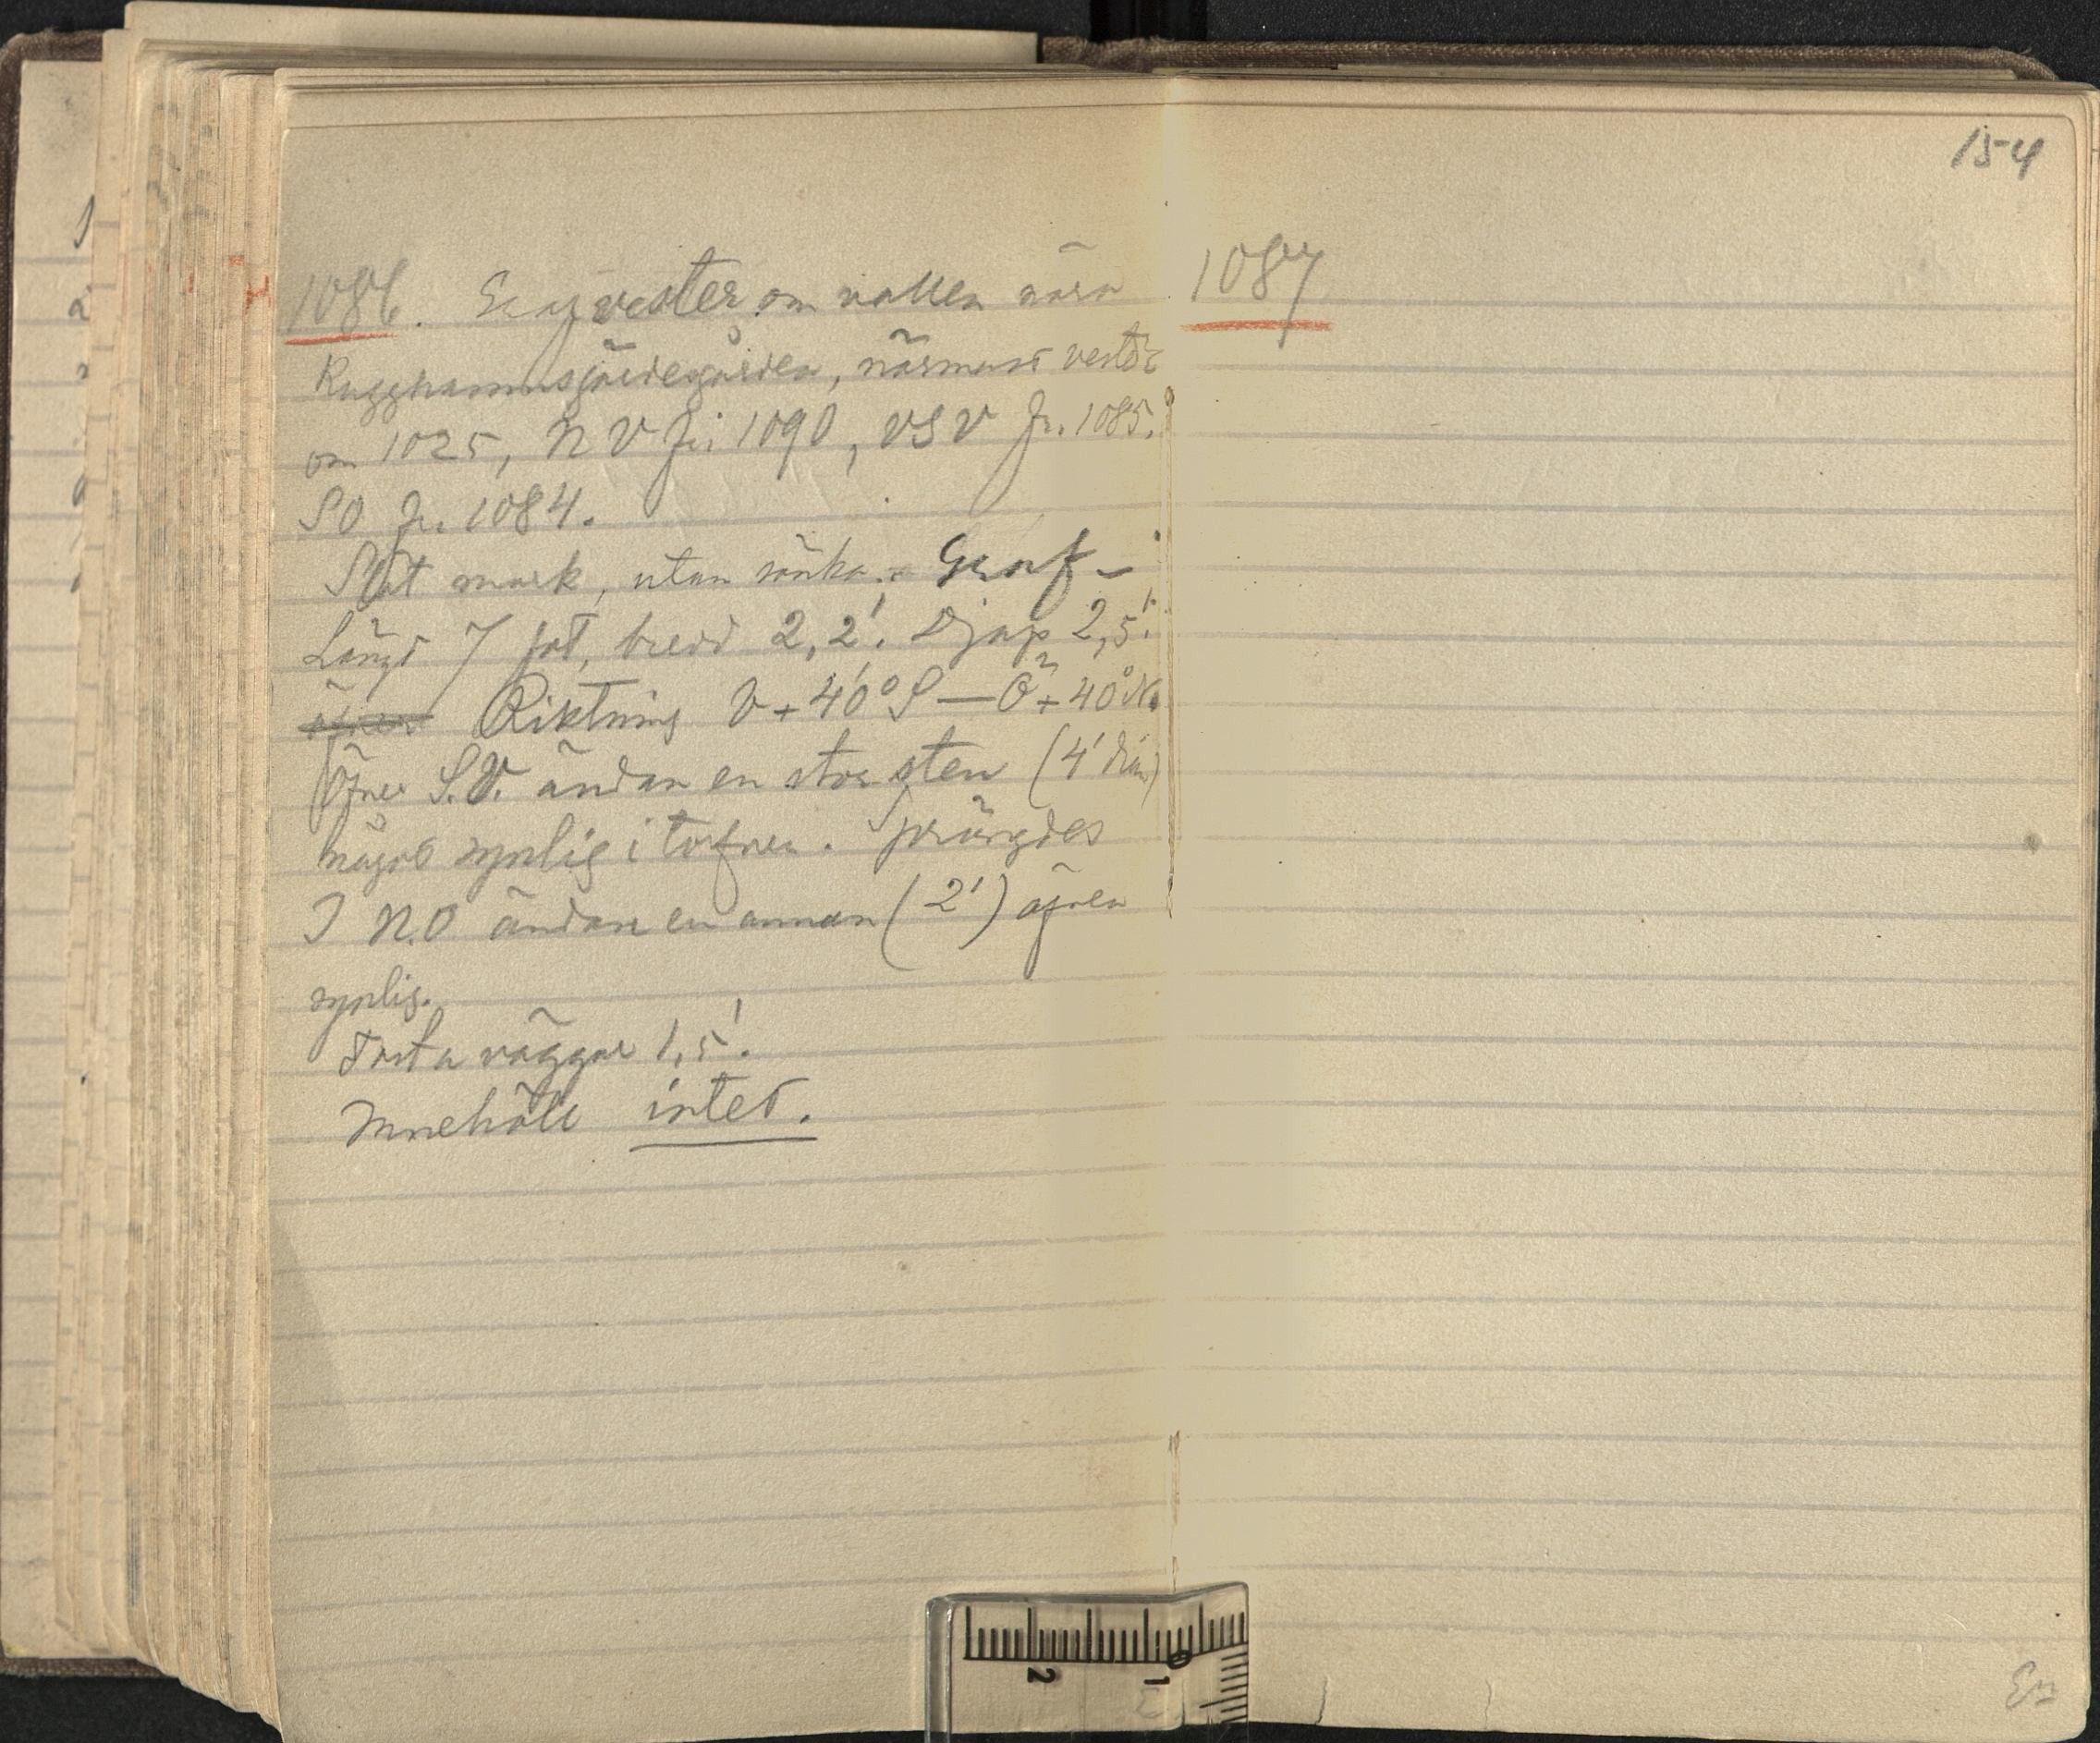 154
1086. vester om vallen nära
närmast vester
om 1025, NV fr. 1090, VSV fr. 1085.
SO fr. 1084.
Slät mark, utan sänka. Graf
Längd 7 fot, bredd 2,2'. Djup 2,5'.
öfver Riktning V+40°S—O+40°N.
Öfver S.V. ändan en stor sten (4' diam)
något synlig i torfven. Sprängdes
I N.O ändan en annan (2') äfven
synlig.
Fasta väggar 1,5'.
Innehöll intet.
1087